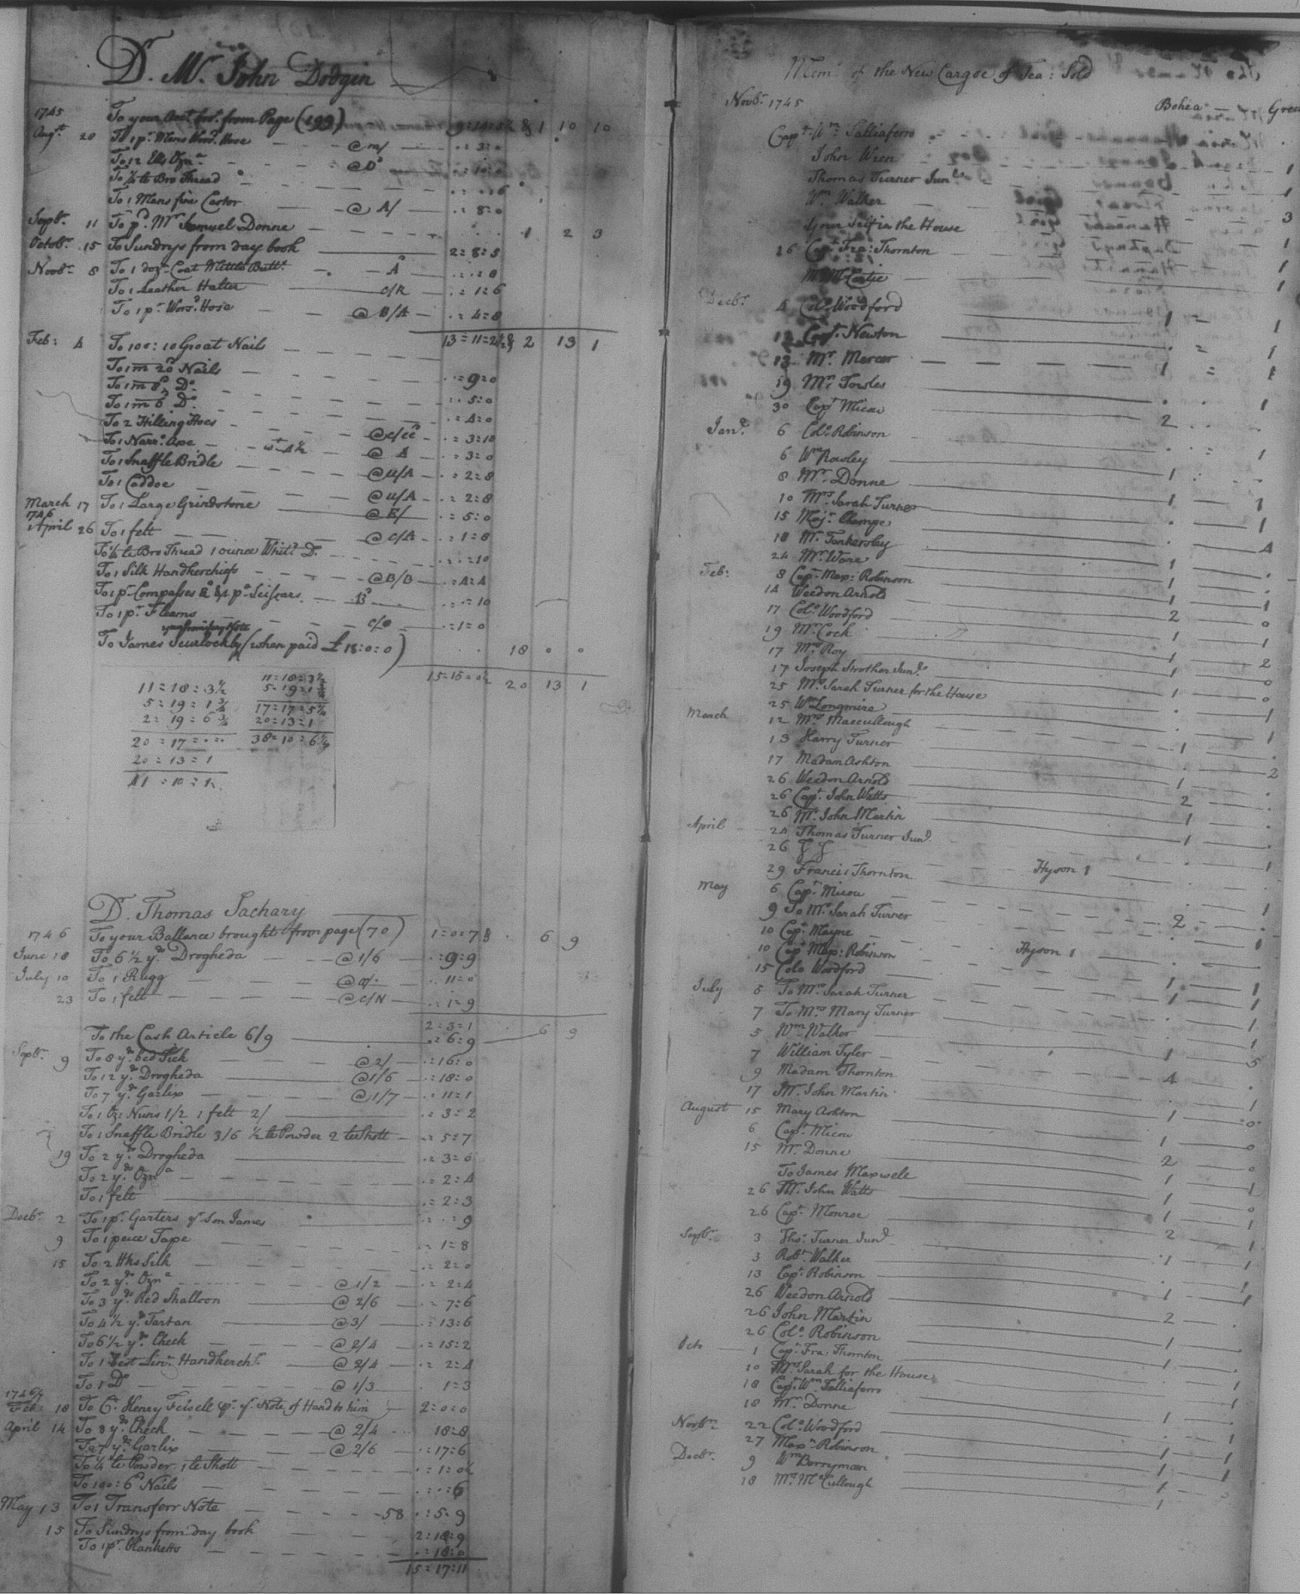 Dr. Mr. John Dodgin
1745 To your Acct. brt. from Page (199) 1 10 10
Augt. 20 To 1 pr. Mens Word. Hose @ m/ .. 3 : 0
To 12 Ells Ozna. @ Do
To ¼ lb Bro Thread
To 1 Mens fine Castor @ A/ .. 8 : 0
Septr. 11 To pd. Mr. Samuel Donne 1 2 3
Octobr. 15 To Sundrys from day book 2 : 8 : 5
Novbr. 8 To 1 doz. Coat Mettle Butts. .. .. 8
To 1 Leather Halter c/R .. 1 : 6
To 1 pr. Word. Hose @ B/A .. 4 : 8
13 = 11 = 2½ 2 13 1
Feb: 4 To 100 : 10 Groat Nails
To 1 m 20d Nails .. 9 : 0
To 1 m 8d Do. .. 5 : 0
To 1 m 6d Do. .. 4 : 0
To 2 Hilling Hoes @ c/cc .. 3 : 10
To 1 Narro. Axe @ A .. 3 : 0
To 1 Snaffle Bridle @ u/A .. 2 : 8
To 1 Caddoe @ u/A .. 2 : 8
March 17 To 1 Large Grindstone @ E/ .. 5 : 0
1746
April 26 To 1 felt @ c/A .. 1 : 8
To ¼ lb Bro Thread 1 ounce Whitd. Do. .. .. 10
To 1 Silk Handkerchief @ B/B .. 4 : 4
To 1 pr. Compasses & 1 pr. Scissars .. .. 10
To 1 pr. Fleams c/o .. 1 : 0
To James Scurlock by (when paid £ 18 : 0 : 0) 18 0 0
15 = 15 = 0½ 20 13 1
11 = 18 = 3½ 11 = 18 = 3½
5 = 19 = 1¾ 5 = 19 = 1¾
2 = 19 = 6¾ 17 = 17 = 5¼
20 = 17 = .. 20 = 13 = 1
20 = 13 = 1 38 = 10 = 6¼
41 = 10 = 1
Dr. Thomas Sachary
1746 To your Ballance brought from page (70) 1 : 0 : 7 6 9
June 18 To 6½ yds. Drogheda @ 1/6 .. 9 : 9
July 10 To 1 Rugg .. 11 : 0
23 To 1 felt @ c/N .. 1 : 9
2 : 3 : 1 6 9
To the Cash Article 6/9 .. 6 : 9
Septr. 9 To 8 yds. bed Tick @ 2/ .. 16 : 0
To 12 yds. Drogheda @ 1/6 .. 18 : 0
To 7 yds. Garlix @ 1/7 .. 11 : 1
To 1 Oz: Nuns 1/2 1 felt 2/ .. 3 : 2
To 1 Snaffle Bridle 3/6 ½ lb Powder 2 lb Shott .. 5 : 7
19 To 2 yds. Drogheda .. 3 : 0
To 2 yds. Ozna. .. 2 : 4
To 1 felt .. 2 : 3
Decbr. 2 To 1 pr. Garters yr. Son James .. .. 9
9 To 1 peice Tape .. 1 : 8
15 To 2 Hks Silk .. 2 : 0
To 2 yds. Ozna. @ 1/2 .. 2 : 4
To 3 yds. Red Shalloon @ 2/6 .. 7 : 6
To 4½ yds. Tartan @ 3/ .. 13 : 6
To 6½ yds. Check @ 2/4 .. 15 : 2
To 1 Best Linn. Handkercht. @ 2/4 .. 2 : 4
To 1 Do @ 1/3 1 : 3
1746/7
Feb: 18 To Ct. Henry Fewell pr. yr. Note of Hand to him 2 : 0 : 0
April 14 To 8 yds. Check @ 2/4 18 : 8
To 7 yds. Garlix @ 2/6 .. 17 : 6
To ¼ lb Powder 1 lb Shott .. 1 : 0½
To 100 : 6d Nails .. .. 6
May 13 To 1 Transferr Note 58 .. 5 : 9
15 To Sundrys from day book 2 : 18 : 9
To 1 pr. blanketts .. 18 : 0
15 = 17 : 11
Mem. of the New Cargoe of Tea: Sold
Novbr. 1745 Bohea Green
Capt. Wm. Talliaferro
John Wren 1
Thomas Turner Junr.
Wm. Walker 1
Your Self in the House 3
26 Capt. Fra: Thornton 1
Mr. McCartie 1
Decbr. 4 Colo. Woodford 1
12 Capt. Newton 1
13 Mr. Mercer 1
19 Mr. Fowles
30 Capt. Micou 2
Jany. 6 Colo. Robinson
6 Wm. Rowley
8 Mr. Donne 1
10 Mrs. Sarah Turner
15 Majr. Champe
18 Mr. Tankersley
24 Mr. Ware
Feb: 8 Capt. Max: Robinson
14 Weedon Arnold
17 Colo. Woodford 2
19 Mr. Cock
17 Mrs. Roy
17 Joseph Strother Junr.
25 Mrs. Sarah Turner for the House
25 Wm. Longmire
March 12 Mrs. Maccullough
13 Harry Turner
17 Madam Ashton
26 Weedon Arnold
26 Capt. John Watts 2
26 Mr. John Martin
April 24 Thomas Turner Junr.
26
29 Francis Thornton Hyson 1
May 6 Capt. Micou
9 To Mrs. Sarah Turner 2
10 Capt. Mayne
10 Capt. Max: Robinson Hyson 1
15 Colo Woodford
July 5 To Mrs. Sarah Turner
7 To Mrs. Mary Turner
5 Wm. Walker
7 William Tyler
9 Madam Thornton
17 Mr. John Martin
August 15 Mary Ashton
6 Capt. Micou
15 Mr. Donne
To James Maxwele
26 Mr. John Watts
26 Capt. Monroe
Septr. 3 Thos. Turner Junr.
3 Robt. Walker
13 Capt. Robinson
26 Weedon Arnold
26 John Martin
26 Colo. Robinson
Octo 1 Capt. Fra: Thornton
10 Mrs. Sarah for the House
18 Capt. Wm. Talliaferro
18 Mr. Donne
Novbr. 22 Colo. Woodford
27 Max. Robinson
Decbr. 9 Wm. Berryman
18 Mr. McCullough